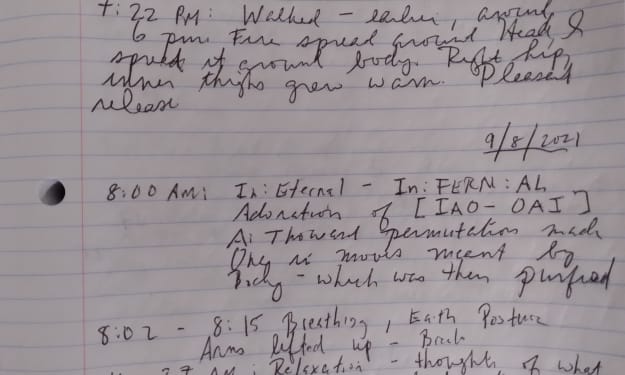 7:22 PM: Walked - earlier, around
6 pm. Fire spread around Head, &
spread it around body. Right hip,
inner thighs grew warm. Pleasant
release
9/8/2021
8:00 AM: In:Eternal - In:FERN:AL
Adoration of [IAO-OAI]
A: Thoward permutation made
One in moves meant by
Body - which was then purified
8:02 - 8:15 Breathing, Earth Posture
Arms lifted up - Back
27 AM: Relaxation - thoughts of what